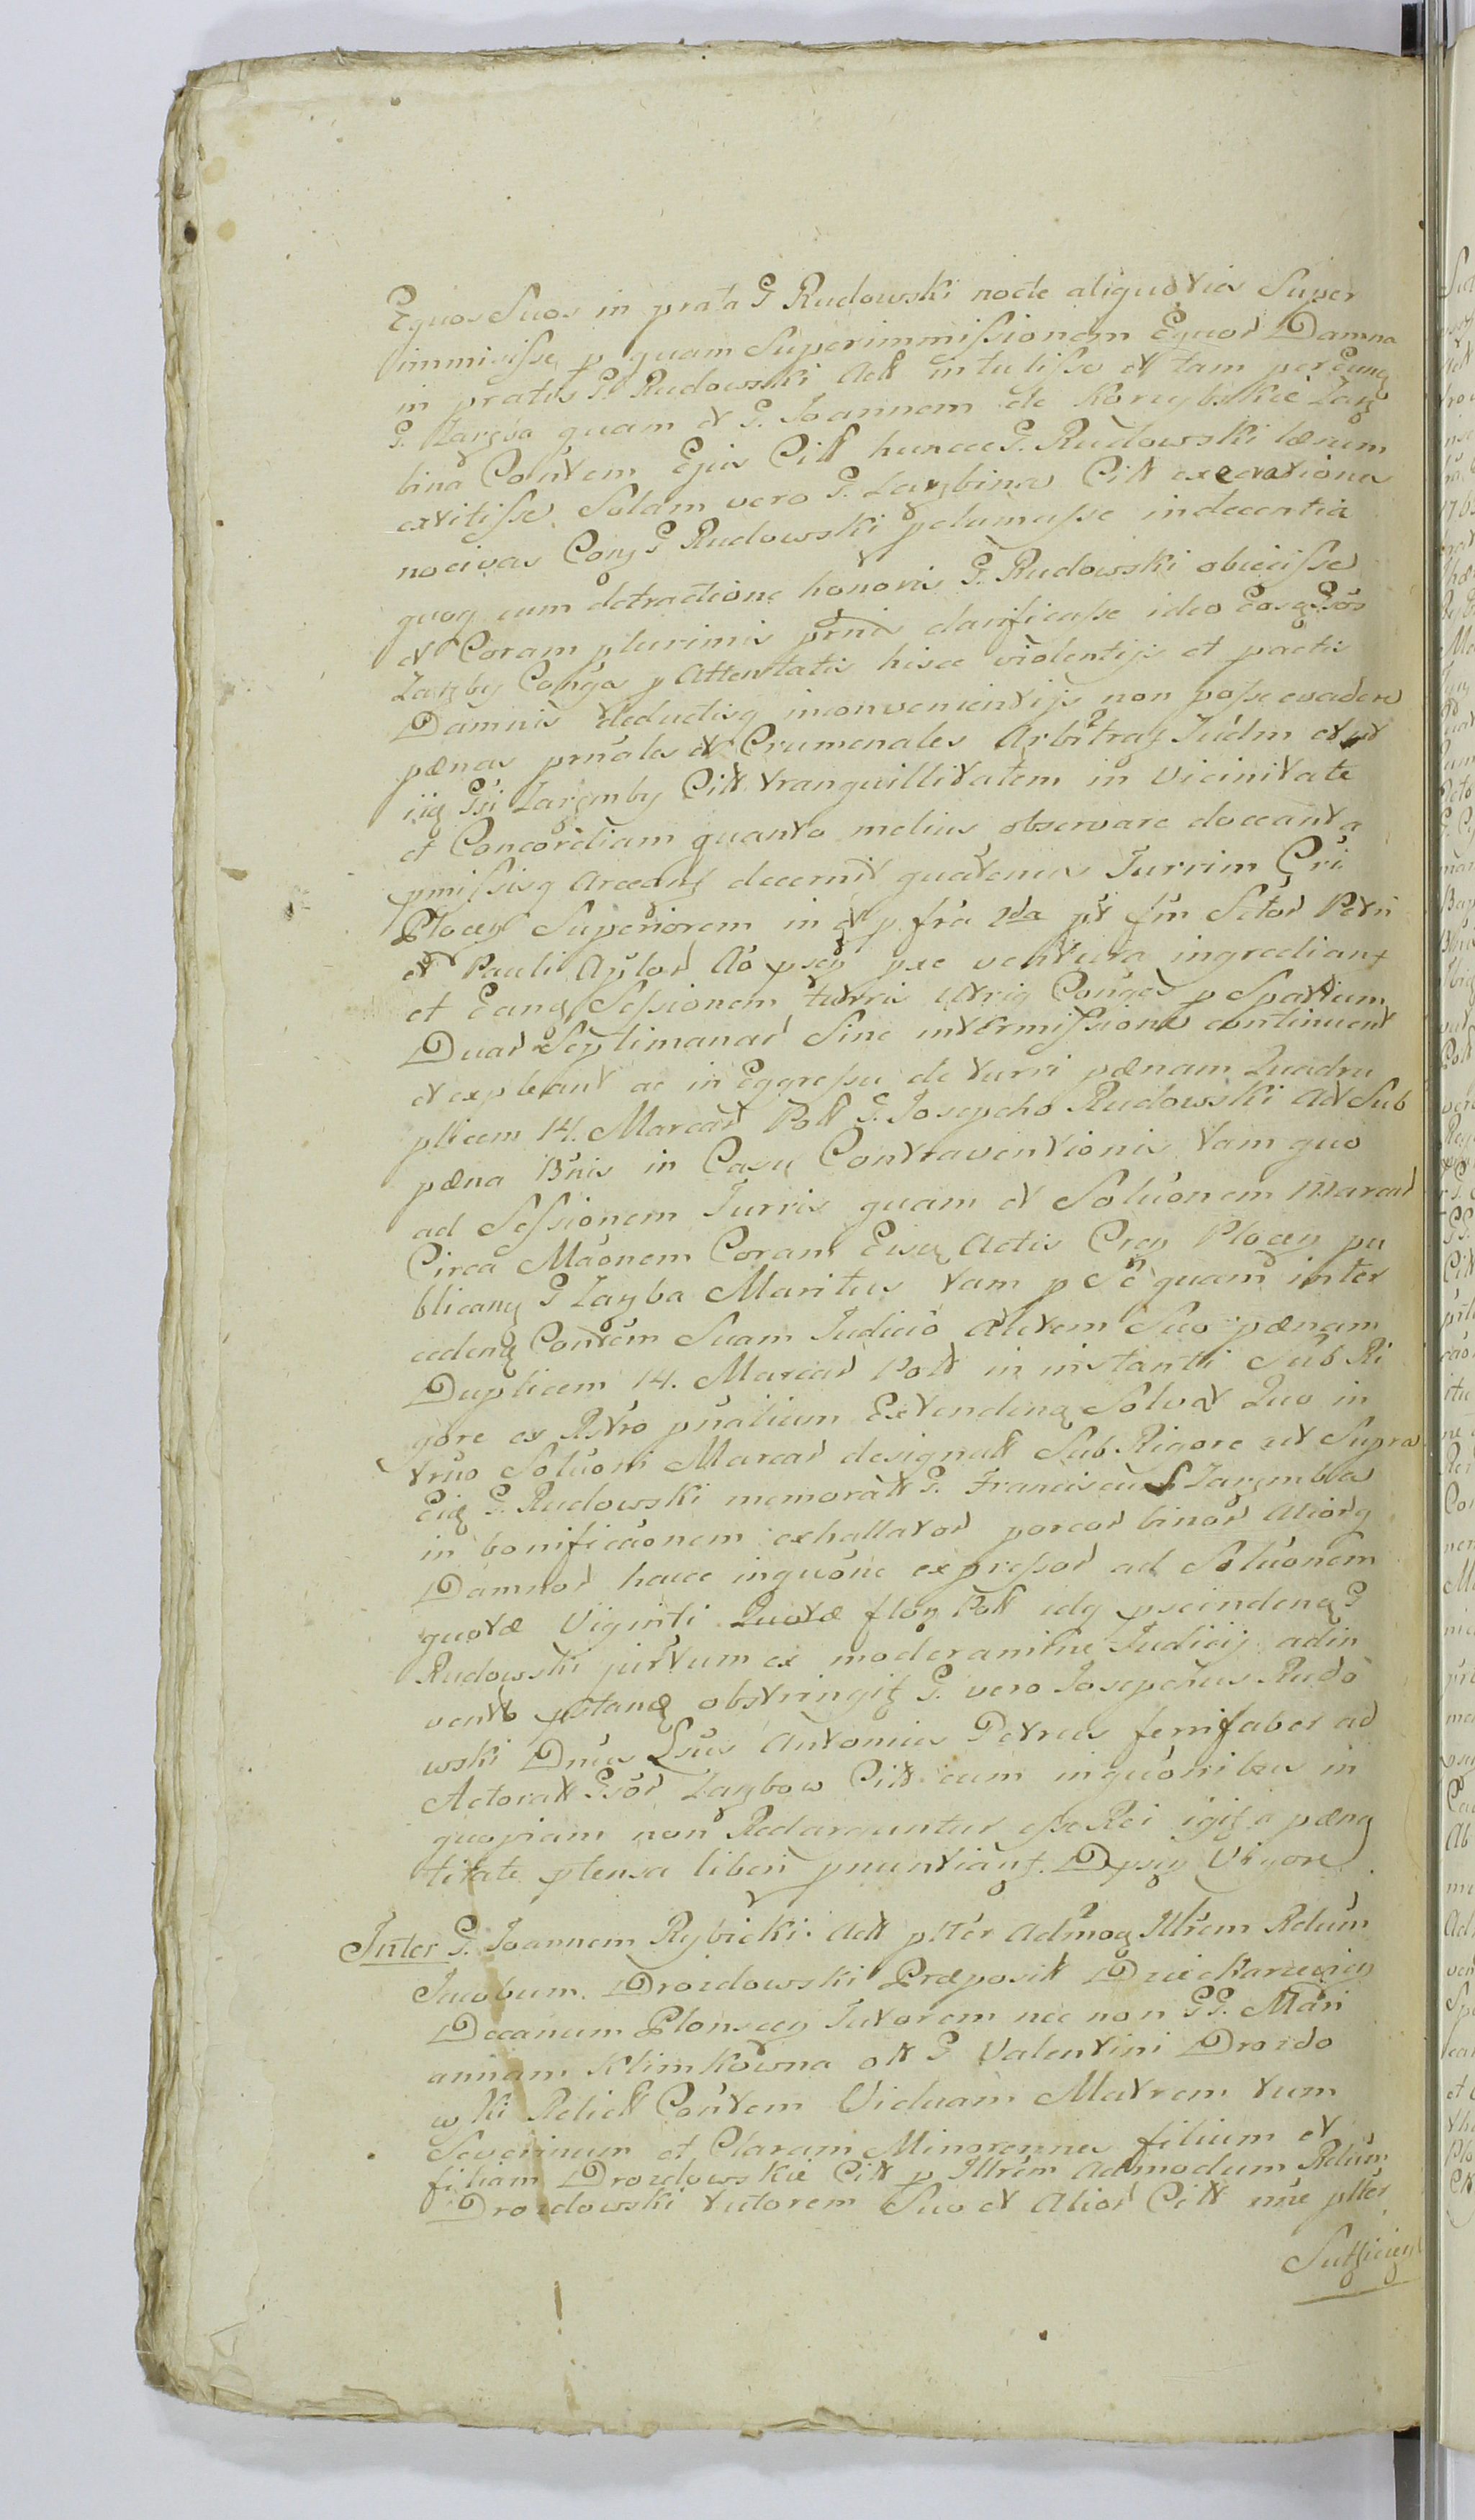 Equos Suos in prata G Rudowski nocte aliquoties Super
immisisse, p quam Superimmissionem Equor Damna
in pratis G. Rudowski Act intulisse et tam per Eunq
G. Zarębа quam et G. Joannem de Korzybskie Zarę
bina Contem Ejus Citt huncce G. Rudowski læsum
extitisse. Solam vero G. Zarębina Citt execrationes
nocivas Cong G Rudowski pclamasse indecentia
quoq cum detractione honoris G. Rudowski obiecisse
et Coram plurimis prnis clarificasse ideo Eosq Gsos
Zaręby Conges p Attentatis hisce violentijs et pactis
Damnis deductisq inconvenientijs non posse evadere
pænas prnales et Crumenales Arbitraq Judm et ut
iiq Gsi Zarember Citt tranquillitatem in Vicinitate
et Concordiam quanto melius observare doceant a
pmissisq Arceant decernit quatenus Turrim Cri
Plocen Superiorem in et p fra 2da pt fm Sctor Petri
et Pauli Aplor Ao psen pxe ventura ingrediant
et Eanq Sessionem turris Utriq Conges p Spatium
Duar Septimanar Sine intermissione continuent
et expleant ac in Eggressu de turri pænam Quadru
plicem 14. Marcar Poll G. Josepho Rudowski Act Sub
pæna Bnis in Casu Contraventionis tam quo
ad Sessionem Turris quam et Soluonem Marcar
Circa Maonem Coram Eisq Actis Cren Plocen pu
blicanq G Zaręba Maritus tam p Se quam inter
cedenq Contem Suam Judicio Autem Suo pænam
Duplicem 14. Marcar Poll in instanti Sub Ri
gore ex Rtro pnalium Extendenq Solvat Quo in
trno Soluoni Marcar designatt Sub Rigore ut Supra
Eiq G. Rudowski memoratt G. Franciscus Zaremba
in bonificaonem exhallator porcor binor Aliorq
Damnor hacce inquone expressor ad Soluonem
quotæ Viginti Quotæ flon Poll idq pscindenq G
Rudowski jurtum ex moderamine Judicij adin
vento pstanq obstringit G. vero Josephus Rudo
wski Dnus Lsus Antonius Petrus ferrifaber ad
Actoratt Gsor Zarębow Citt cum inquonibus in
quopiam non Redarguntur esse Rei igit a pænq
litate ptensa liberi pnuntiant. Dpsen Vigore.
Inter G. Joannem Rybicki Act plter Admoq Illrem Rdum
Jacobum Drozdowski Præposit
Decanum Plonscen Tutorem nec non GG. Mari
annam Klimkowna ott G Valentini Drozdo
wski Relict Contem Viduam Matrem tum
Severinum et Claram Minorennes filium et
filiam Drozdowskie Citt p Illrem Admodum Rdum
Drozdowski tutorem Suo et Alior Citt nne plter
Sufficien